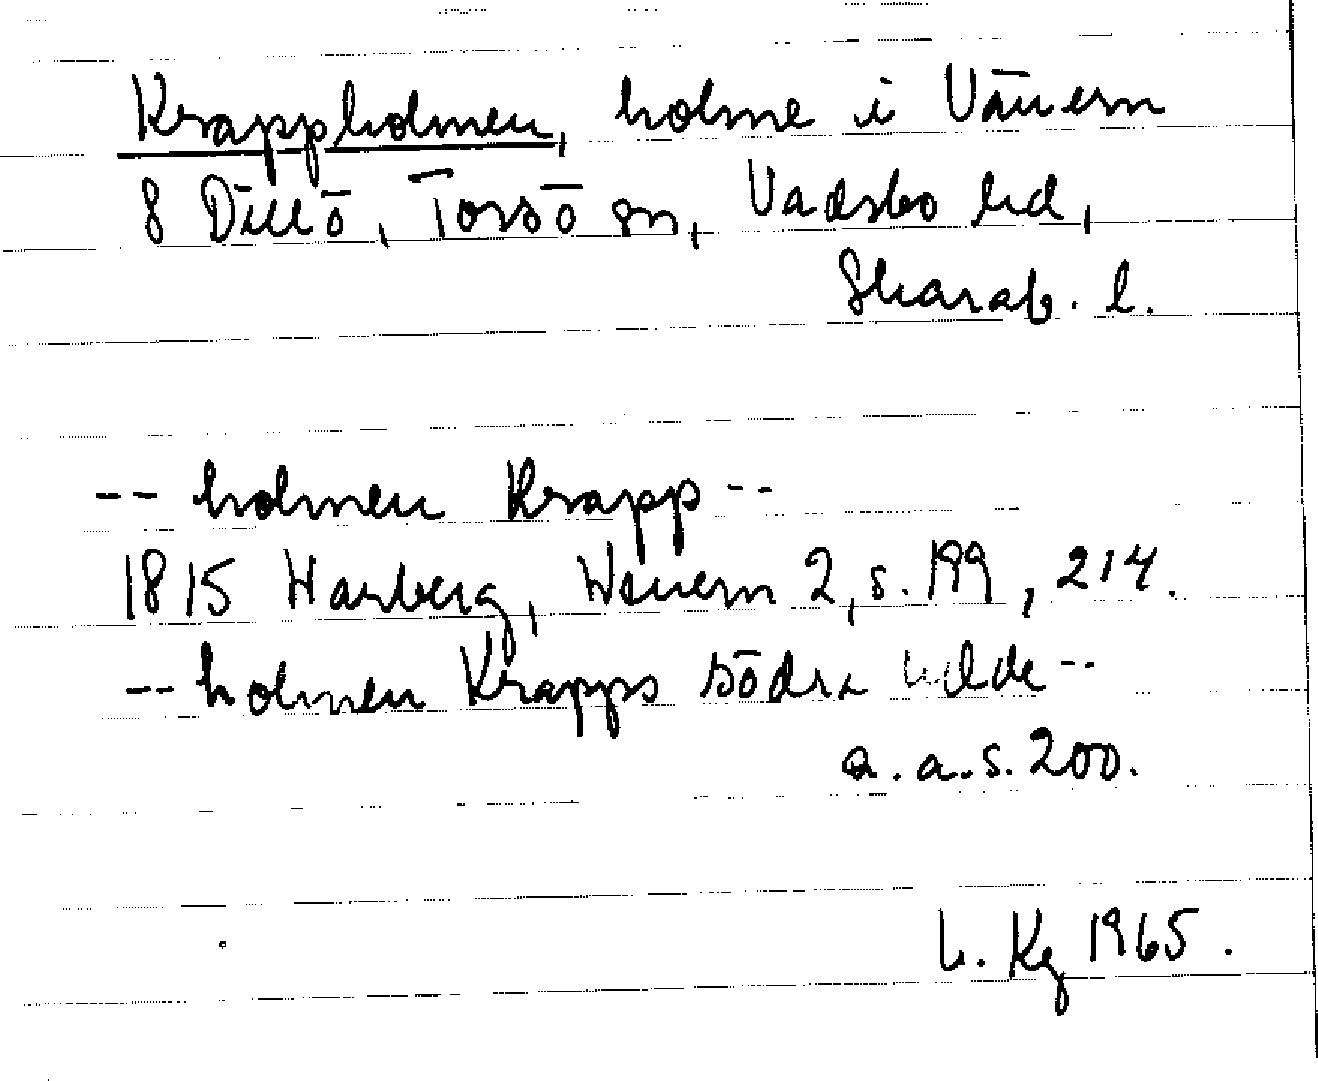 Krappholmen, holme i Vänern
S Dillö, Torsö sn, Vadsbo hd,
Skarab. l.
-- holmen Krapp --
1815 Warberg, Wenern 2, s. 199, 214.
-- holmen Krapps södra udde --
a. a. s. 200.
Kg 1965.